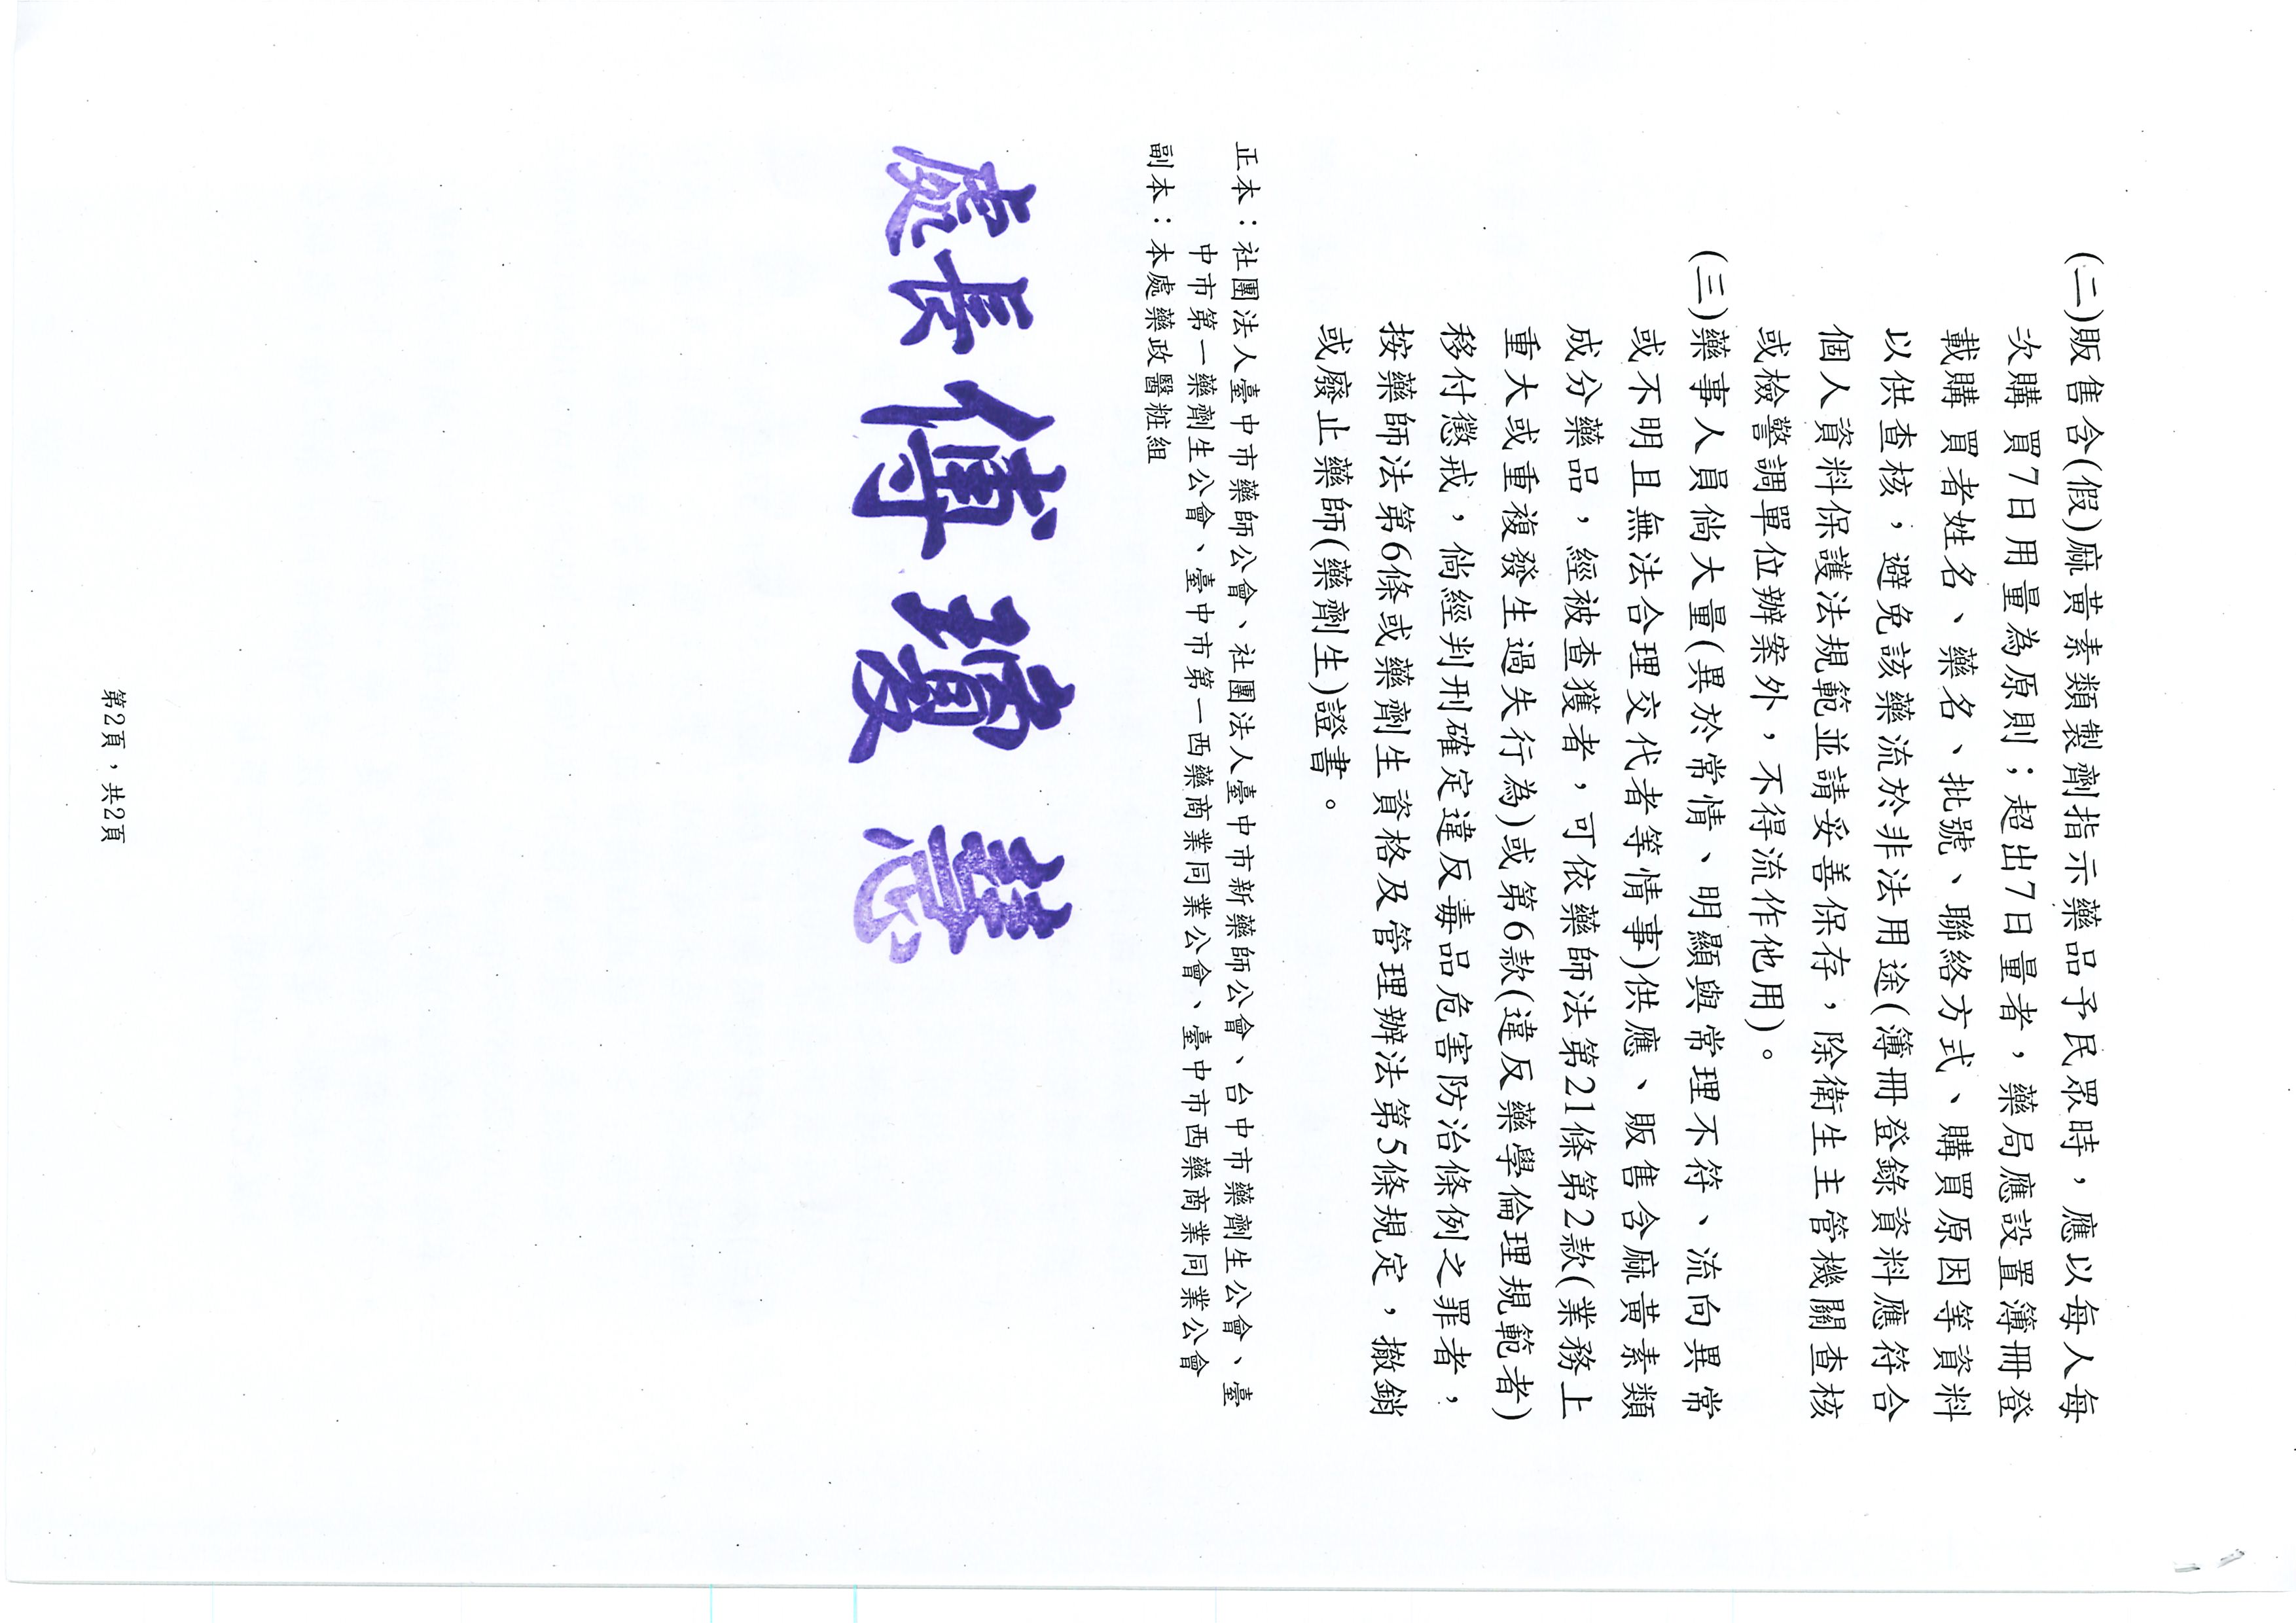 (二)販售含(假)麻黃素類製劑指示藥品予民眾時，應以每人每
次購買7日用量為原則；超出7日量者，藥局應設置簿冊登
載購買者姓名、藥名、批號、聯絡方式、購買原因等資料
以供查核，避免該藥流於非法用途(簿冊登錄資料應符合
個人資料保護法規範並請妥善保存，除衛生主管機關查核
或檢警調單位辦案外，不得流作他用)。
(三)藥事人員倘大量(異於常情、明顯與常理不符、流向異常
或不明且無法合理交代者等情事)供應、販售含麻黃素類
成分藥品，經被查獲者，可依藥師法第21條第2款(業務上
重大或重複發生過失行為)或第6款(違反藥學倫理規範者)
移付懲戒，倘經判刑確定違反毒品危害防治條例之罪者，
按藥師法第6條或藥劑生資格及管理辦法第5條規定，撤銷
或廢止藥師(藥劑生)證書。
正本：社團法人臺中市藥師公會、社團法人臺中市新藥師公會、台中市藥劑生公會、臺
中市第一藥劑生公會、臺中市第一西藥商業同業公會、臺中市西藥商業同業公會
副本：本處藥政醫粧組
處長傅瓊慧
第2頁，共2頁